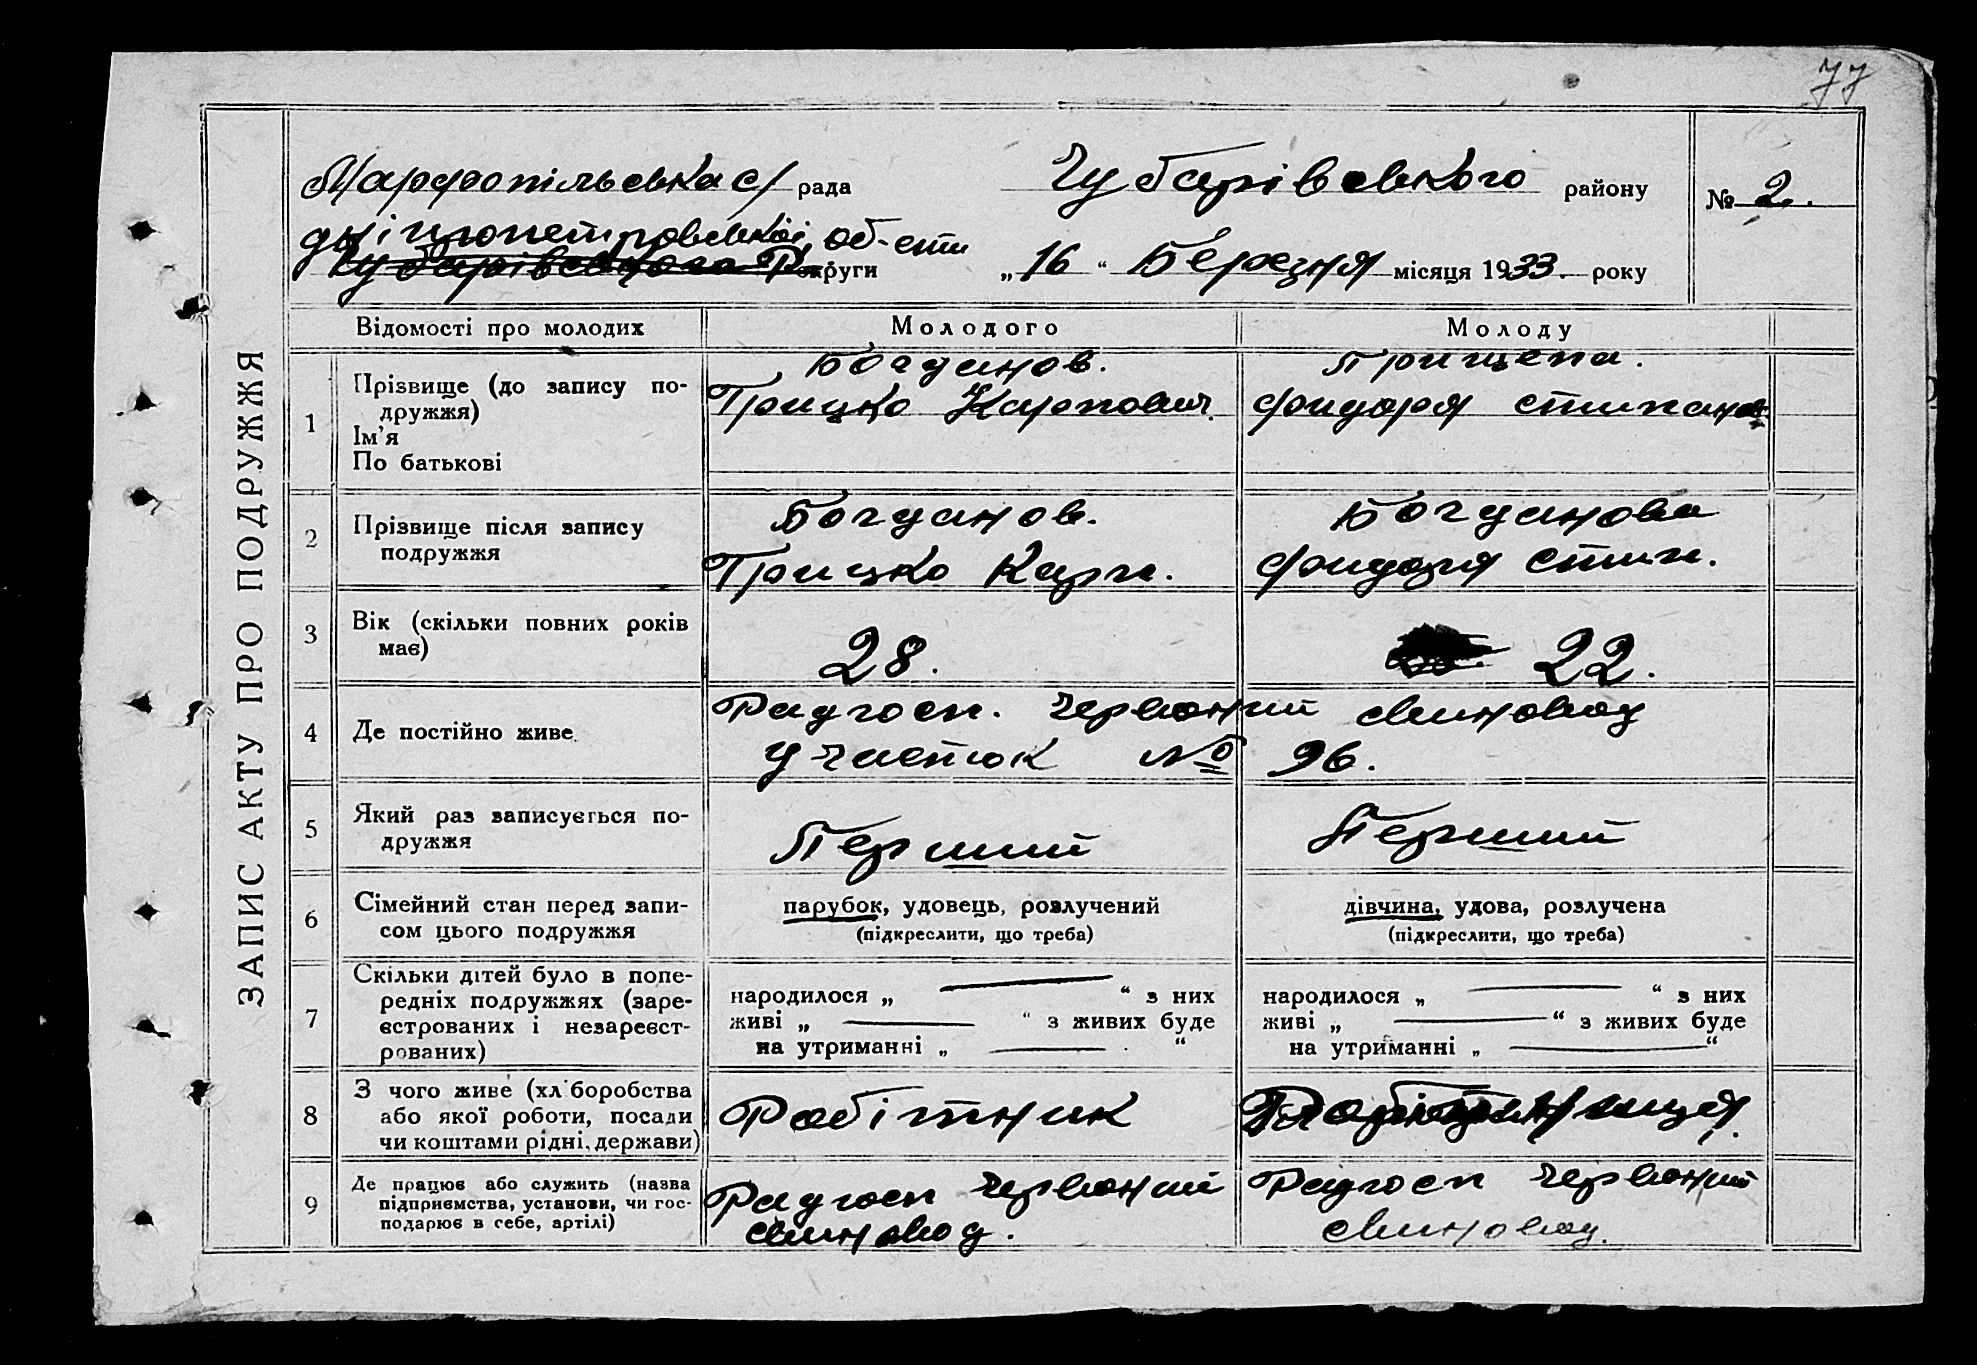 77
Марфопільська с/ рада Чубарівського району № 2.
дніпропетровської об-сти
Чубарівського Р. округи „ 16 “ Березня місяця 1933. року
ЗАПИС АКТУ ПРО ПОДРУЖЖЯ
Відомості про молодих Молодого Молоду
1 Прізвище (до запису по- Богданов. Прищепа.
дружжя) Грицко Карпович.
Ім’я
По батькові
2 Прізвище після запису Богданов. Богданова
подружжя Грицко Карп. Степ.
3 Вік (скільки повних років 28. 22.
має)
4 Де постійно живе Радгосп. Червоний свиновод
участок № 96.
5 Який раз записується по- Перший Перший
дружжя
6 Сімейний стан перед запи- парубок, удовець, розлучений дівчина, удова, розлучена
сом цього подружжя (підкреслити, що треба) (підкреслити, що треба)
7 Скільки дітей було в попе- народилося „ “ з них народилося „ “ з них
редніх подружжях (заре- живі „ “ з живих буде живі „ “ з живих буде
єстрованих і незареєст- на утриманні „ “ на утриманні „ “
рованих)
8 З чого живе (хліборобства Робітник
або якої роботи, посади
чи коштами рідні, держави)
9 Де працює або служить (назва Радгосп Червоний Радгосп Червоний
підприємства, установи, чи гос- свиновод. свиновод.
подарює в себе, артілі)